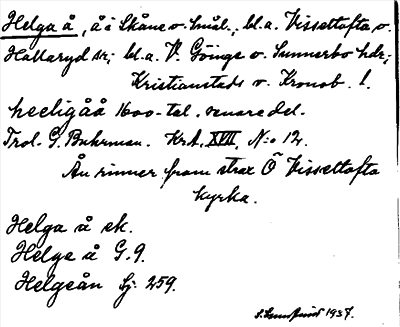 Helga å, å i Skåne o. Smål., bl.a. Vissettofta o.
Hallaryd sn; bl.a. V. Göinge o. Sunnerbo hdr;
Kristianstads o. Kronob. l.
heeligåå 1600-tal. senare del.
Trol. G. Buhrman. KrA, XVII, N:o 12.
Ån rinner fram strax Ö Vissettofta
kyrka.
Helga å ek.
Helge å G.9.
Helgeån Sj. 259.
1937.